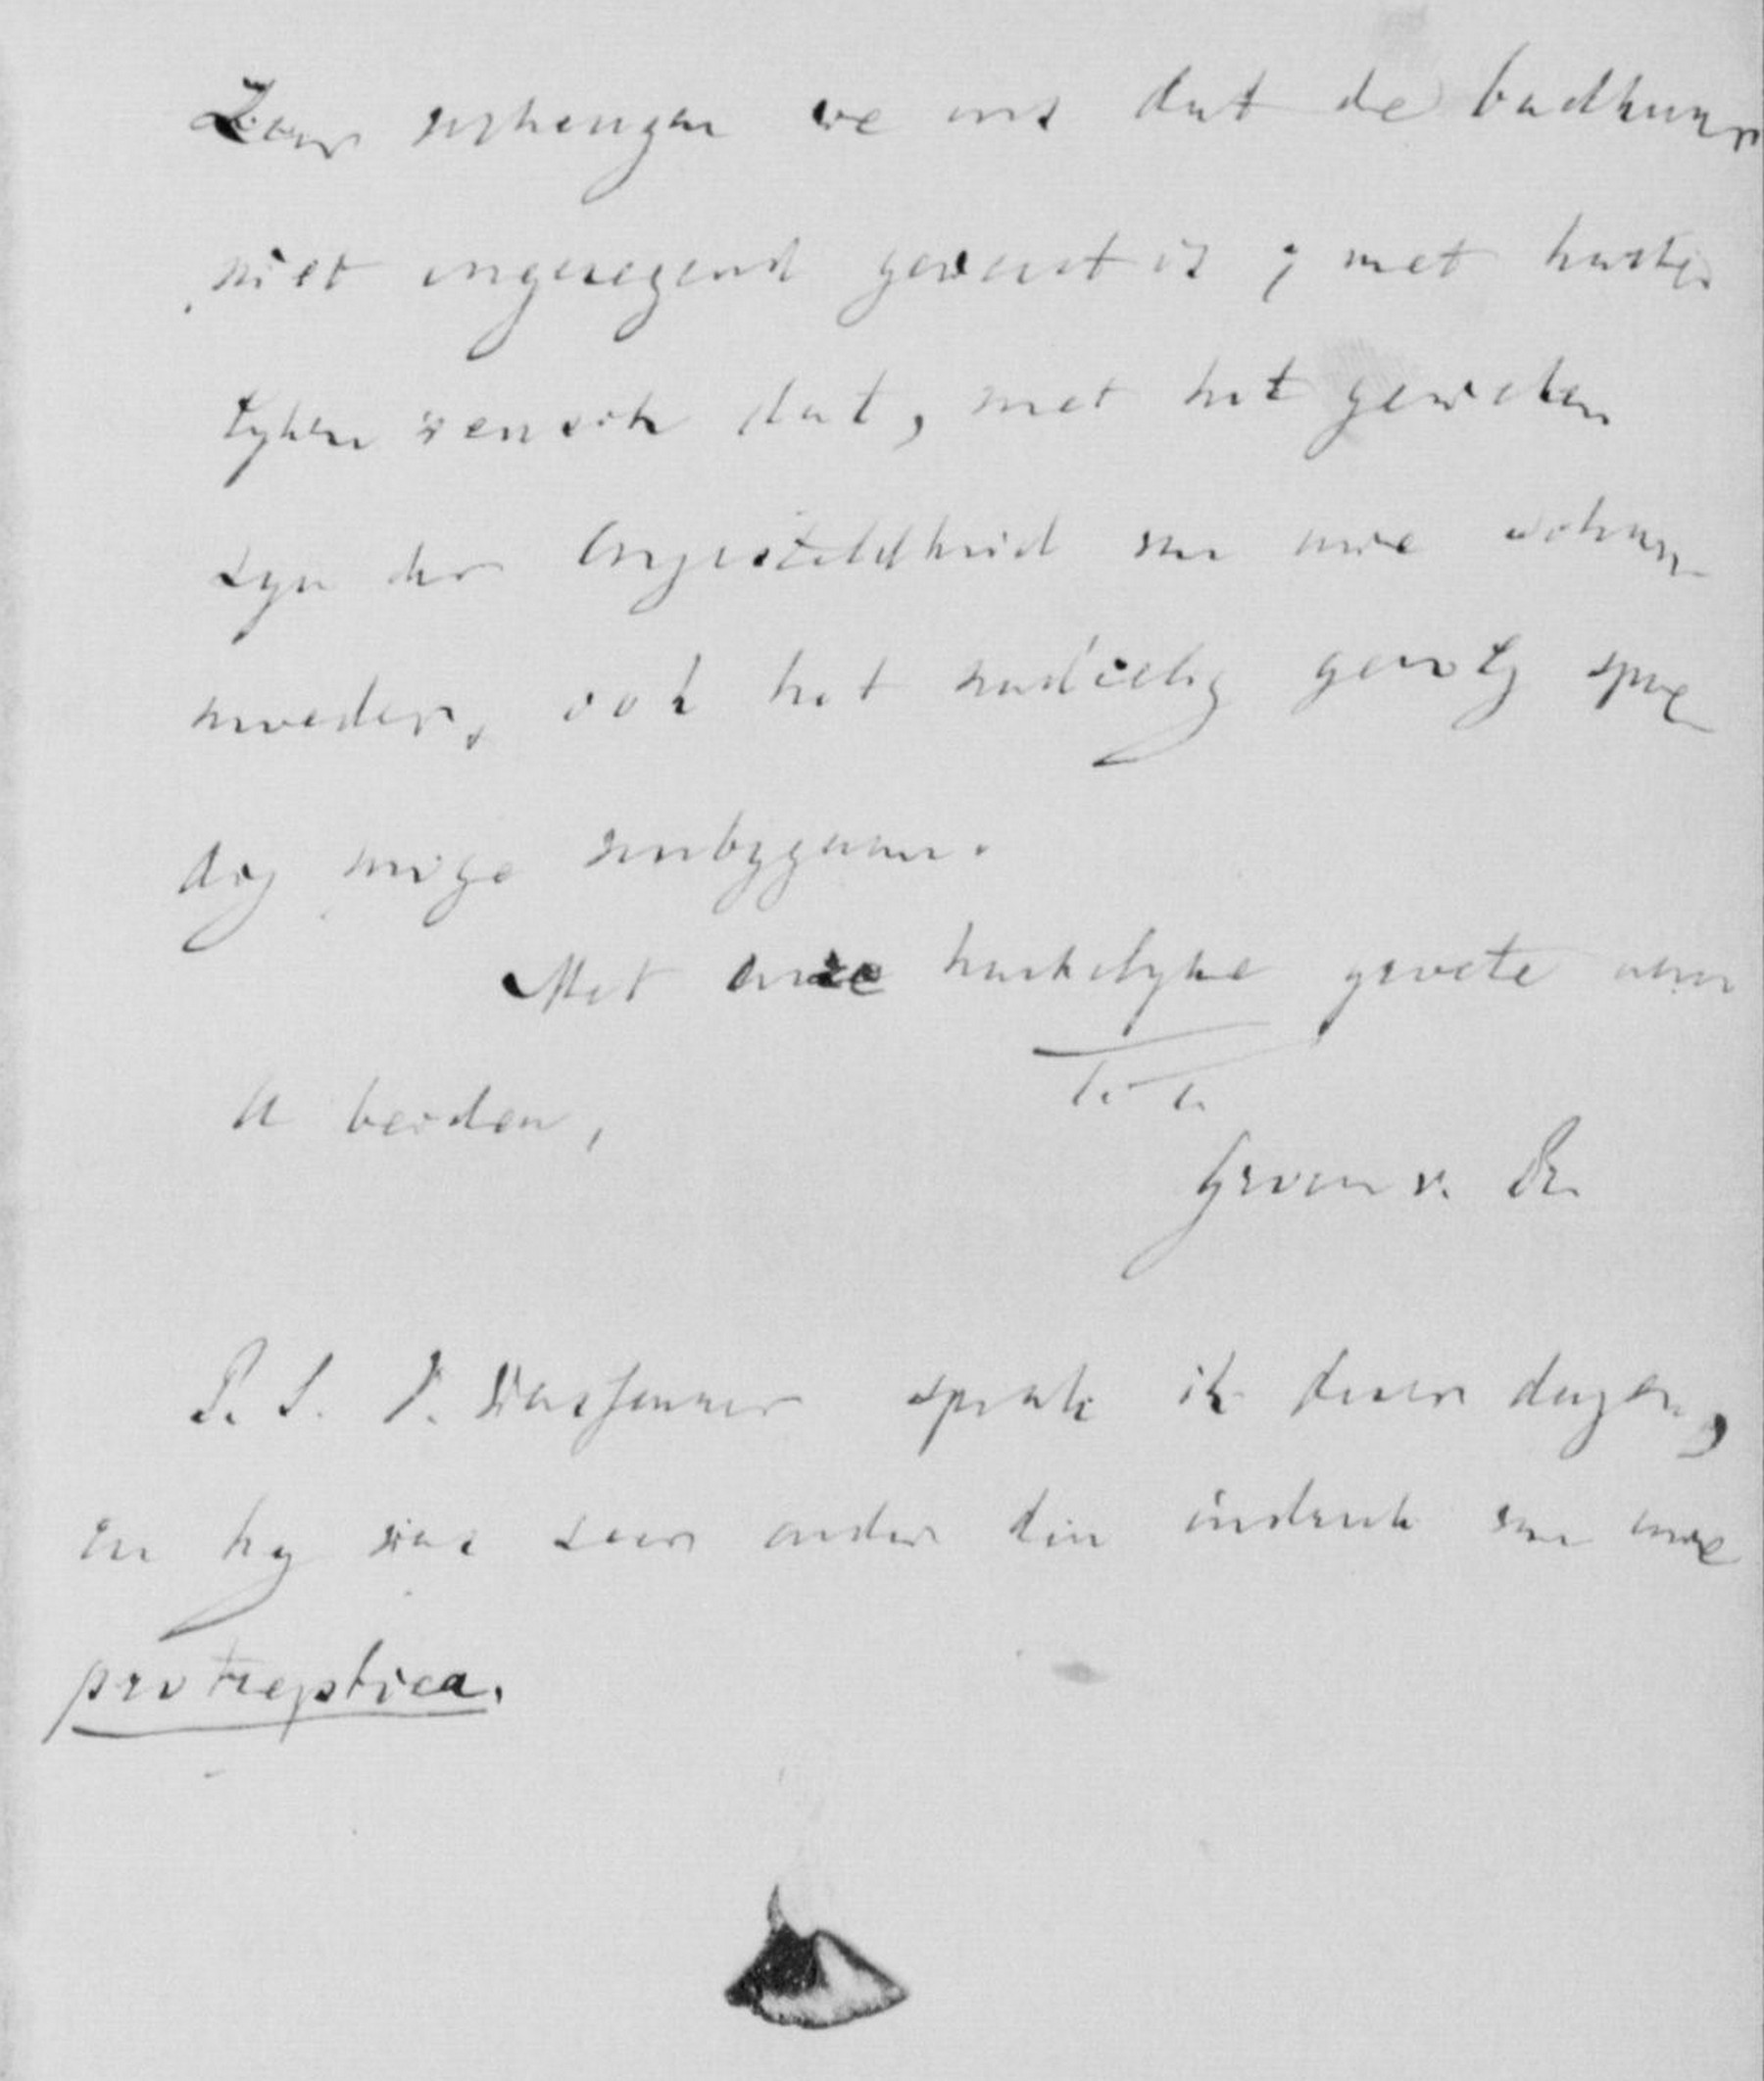 Zeer verheugen we ons dat de badkuur
niet ongezegend geweest is; met harte
lyken wensch dat, met het geweken
zyn der ongesteldheid van uwe schoon
moeder, ook het nadeelig gevolg spoe
dig moge voorbygaan.
Met onze hartelyke groete aan
U beiden,
T. T.
Groen v. Pr.
P. S. V. Wassenaer sprak ik dezer dagen,
en hy was zeer onder den indruk van uwe
protreptica.